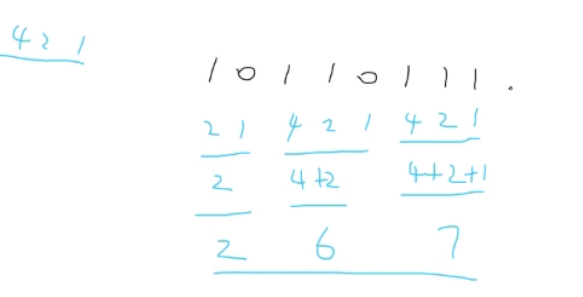 4 2 1
1 0 1 1 0 1 1 1 .
2 1 4 2 1 4 2 1
2 4+2 4+2+1
2 6 7